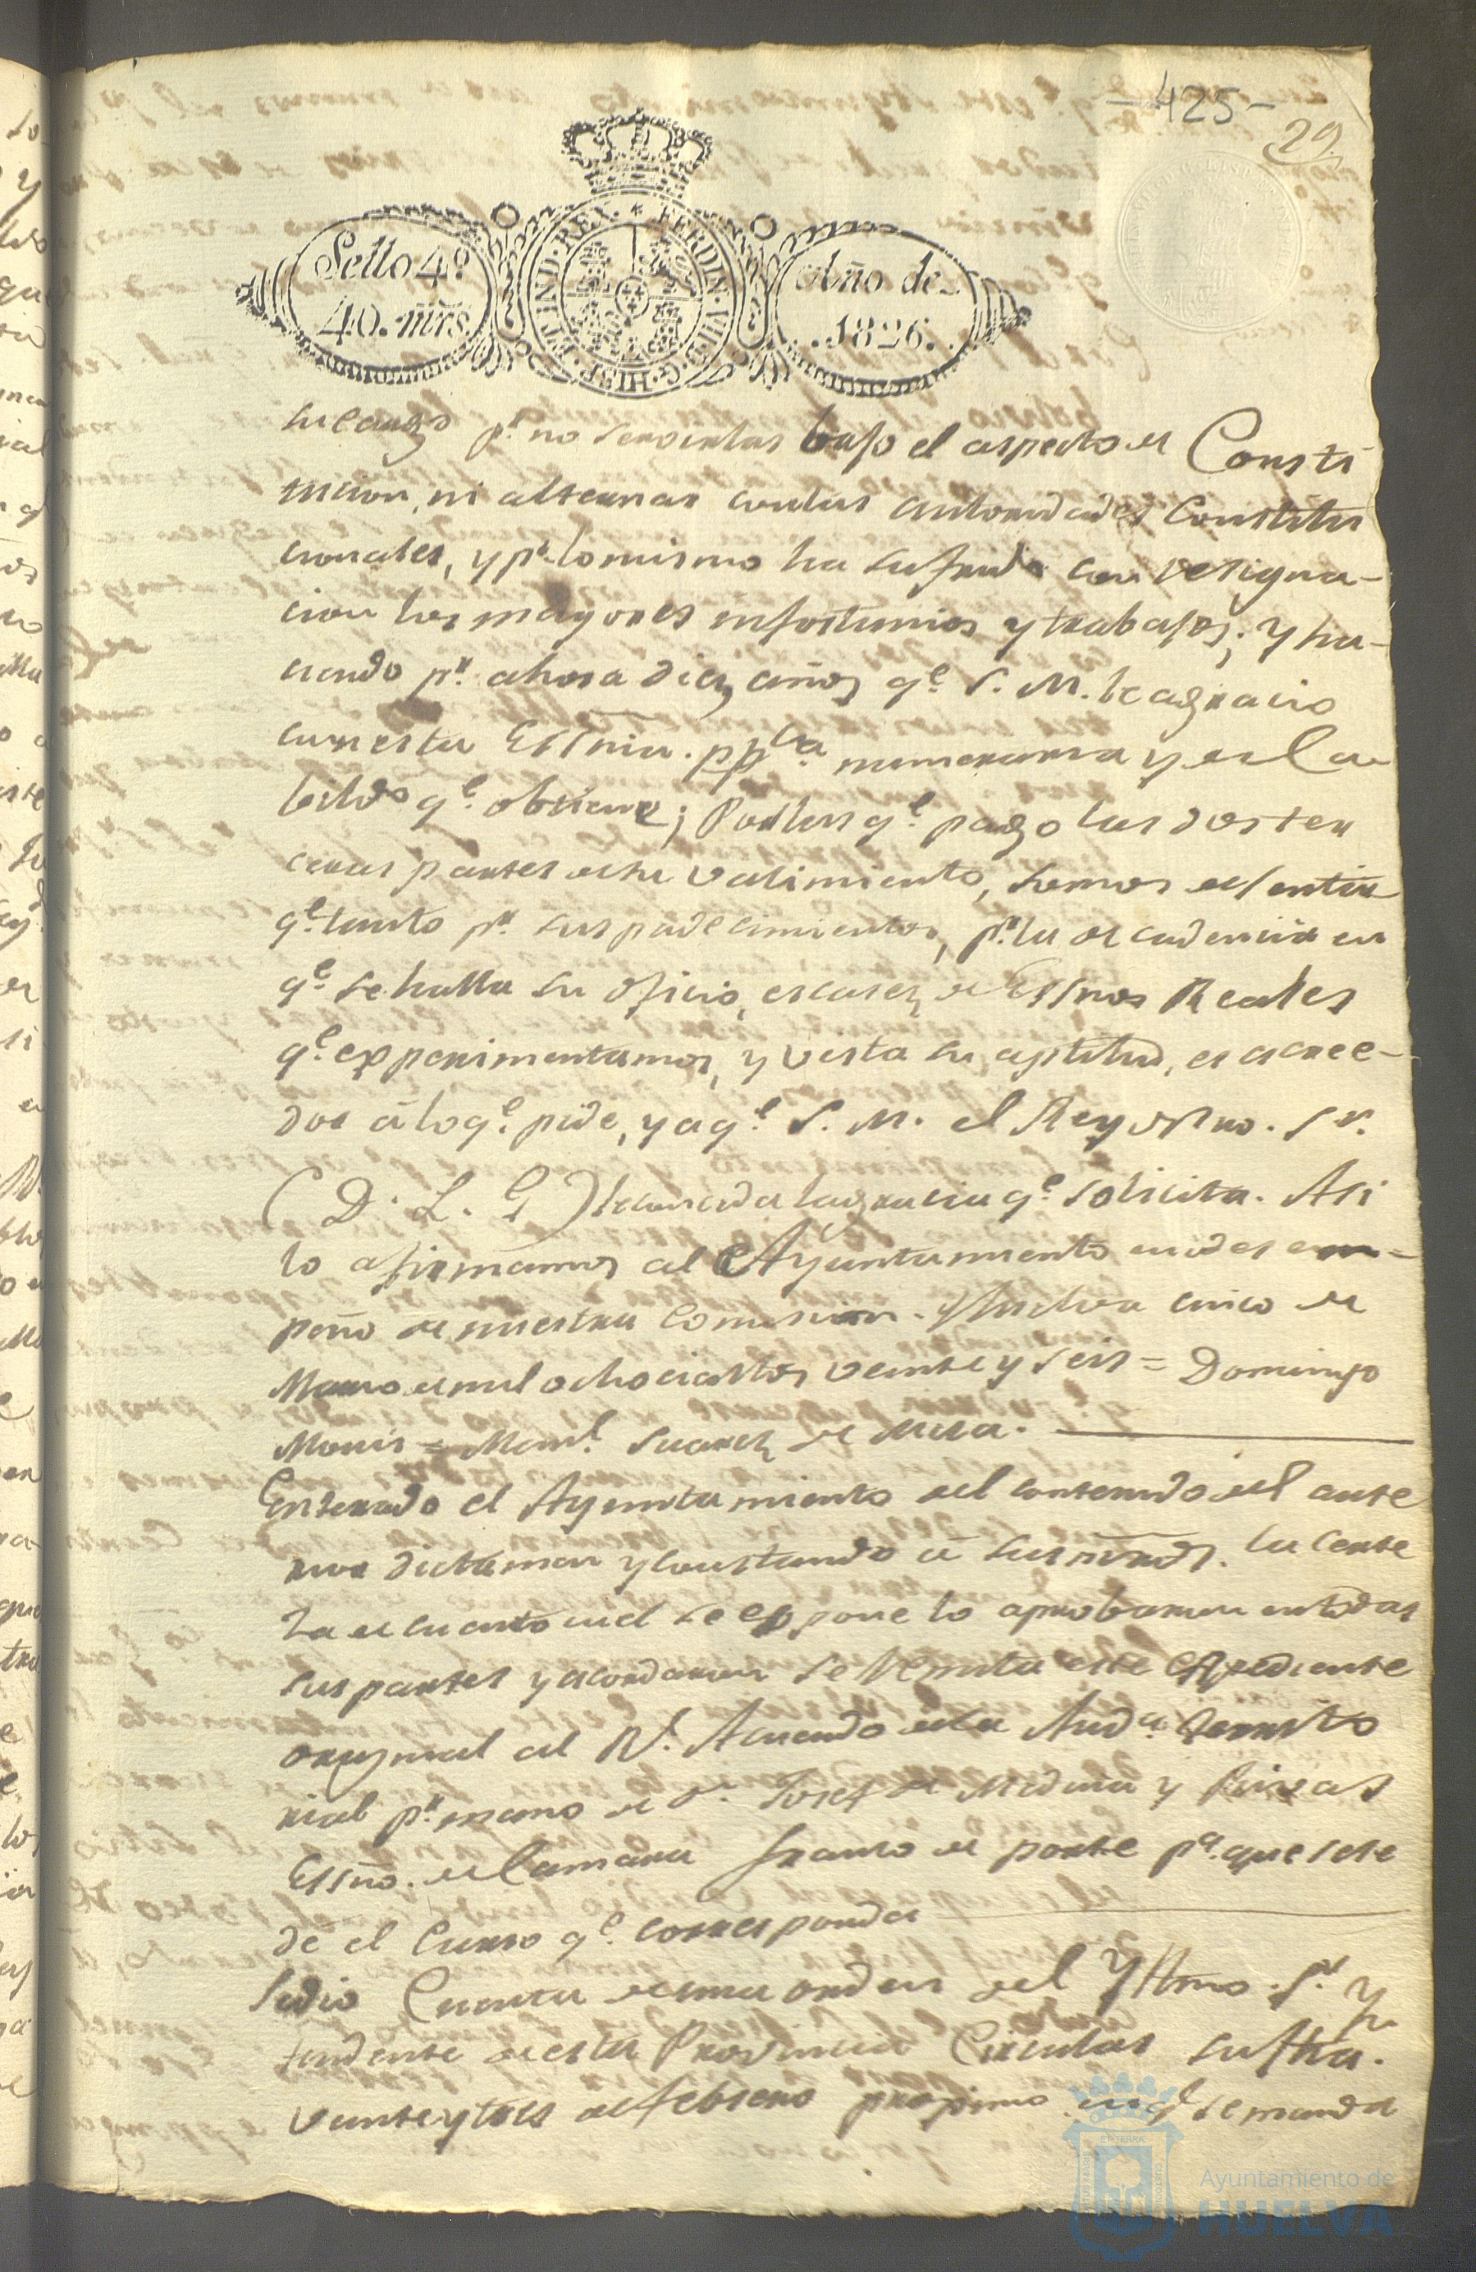 -425-
29.
Sello 4º
40. mrs
FERDIN. VII. D. G. HISP. ET IND. REX.
Año de
1826.
su cargo pr. no servirlas bajo el aspecto de Consti
tucion, ni alternar con las autoridades Constitu
cionales, y pr. lo mismo ha sufrido con resigna-
cion los mayores infortunios y trabajos; y ha-
ciendo pr. ahora diez años qe. S. M. le agracio
con esta Essnia. ppca. numeraria y el Ca
bildo qe. obtiene; Por las qe. pago las dos ter
ceras partes de su valimiento, somos de sentir
qe. tanto pr. sus padecimientos, pr. la decadencia en
qe. se halla su oficio, escases de Essnos Reales
qe. experimentamos, y vista su aptitud, es acree-
dor á lo qe. pide, y a qe. S. M. el Rey ntro. Sr.
(D. L. G) le conceda la gracia qe. solicita. Asi
lo afirmamos al Ayuntamiento en desem=
peño de nuestra Comision. Huelva cinco de
Marzo de mil ochocientos veinte y seis = Domingo
Monis = Manl. Suarez de Mesa.
Enterado el Ayuntamiento del contenido del ante
rior dictamen y constando á sus mrds. la certe
za de cuanto en el se expone lo aprobaron en todas
sus partes y acordaron se remita este Espediente
original al Rl. Acuerdo de la Auda. Territo
rial pr. mano de Dn. Josef de Medina y Rivas
Essno. de Camara franco de porte pa. que se le
dé el Curso qe. corresponda
Se dio Cuenta de una orden del Yltmo. Sr. Yn
tendente de esta Provincia Circular su fha.
veinte y tres de febrero proximo en qe. se manda
Ayuntamiento de
HUELVA